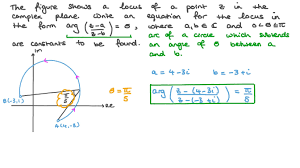 The figure shows a locus of a point z in the
complex plane. Write an equation for the locus in
the form arg (z-a / z-b) = θ, where a,b ∈ ℂ and 0<θ≤π
are constants to be found.
arc of a circle which subtends
an angle of θ between a
and b.
Im
a = 4-3i b = -3+i
B(-3,1)
π/5
θ = π/5
arg (z-(4-3i) / z-(-3+i)) = π/5
Re
A(4,-3)